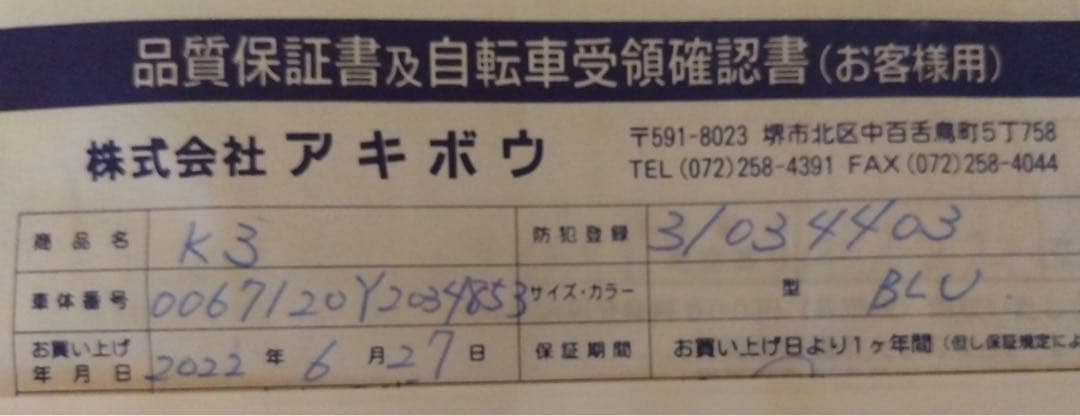 品質保証書及自転車受領確認書(お客様用)
株式会社 アキボウ
〒591-8023 堺市北区中百舌鳥町5丁758
TEL(072)258-4391 FAX(072)258-4044
商品名 K3 防犯登録 31034403
車体番号 0067120Y2034853 サイズ・カラー 型 BLU
お買い上げ年月日 2022年6月27日 保証期間 お買い上げ日より1ヶ年間(但し保証規定によ